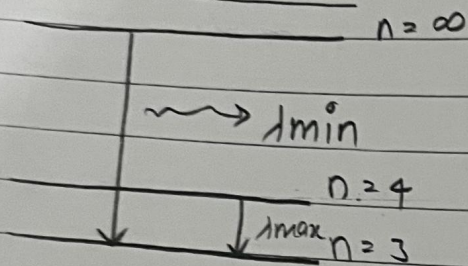 n = ∞
λmin
n = 4
λmax
n = 3